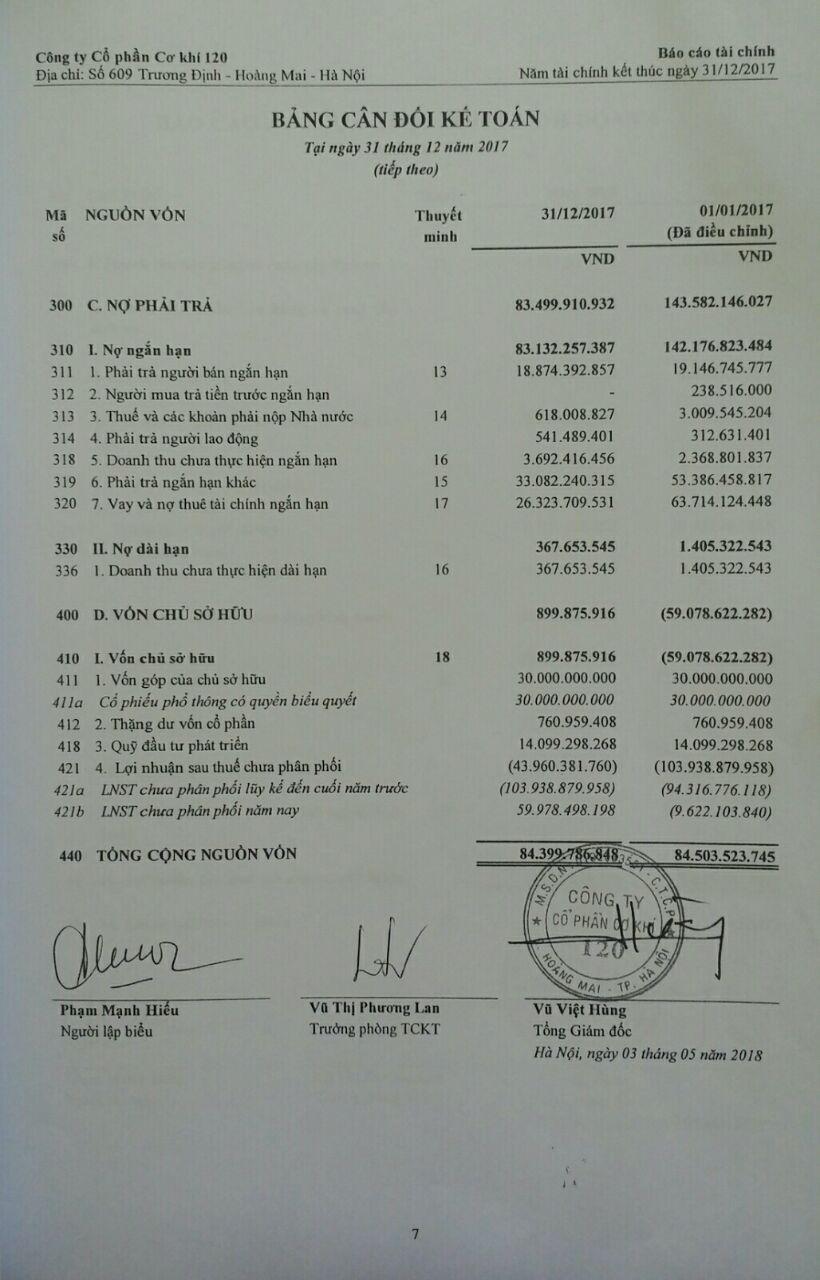 Công ty Cổ phần Cơ khí 120 Báo cáo tài chính
Địa chỉ: Số 609 Trương Định - Hoàng Mai - Hà Nội Năm tài chính kết thúc ngày 31/12/2017
BẢNG CÂN ĐỐI KẾ TOÁN
Tại ngày 31 tháng 12 năm 2017
(tiếp theo)
Mã số NGUỒN VỐN Thuyết minh 31/12/2017 01/01/2017
(Đã điều chỉnh)
VND VND
300 C. NỢ PHẢI TRẢ 83.499.910.932 143.582.146.027
310 I. Nợ ngắn hạn 83.132.257.387 142.176.823.484
311 1. Phải trả người bán ngắn hạn 13 18.874.392.857 19.146.745.777
312 2. Người mua trả tiền trước ngắn hạn - 238.516.000
313 3. Thuế và các khoản phải nộp Nhà nước 14 618.008.827 3.009.545.204
314 4. Phải trả người lao động 541.489.401 312.631.401
318 5. Doanh thu chưa thực hiện ngắn hạn 16 3.692.416.456 2.368.801.837
319 6. Phải trả ngắn hạn khác 15 33.082.240.315 53.386.458.817
320 7. Vay và nợ thuê tài chính ngắn hạn 17 26.323.709.531 63.714.124.448
330 II. Nợ dài hạn 367.653.545 1.405.322.543
336 1. Doanh thu chưa thực hiện dài hạn 16 367.653.545 1.405.322.543
400 D. VỐN CHỦ SỞ HỮU 899.875.916 (59.078.622.282)
410 I. Vốn chủ sở hữu 18 899.875.916 (59.078.622.282)
411 1. Vốn góp của chủ sở hữu 30.000.000.000 30.000.000.000
411a Cổ phiếu phổ thông có quyền biểu quyết 30.000.000.000 30.000.000.000
412 2. Thặng dư vốn cổ phần 760.959.408 760.959.408
418 3. Quỹ đầu tư phát triển 14.099.298.268 14.099.298.268
421 4. Lợi nhuận sau thuế chưa phân phối (43.960.381.760) (103.938.879.958)
421a LNST chưa phân phối lũy kế đến cuối năm trước (103.938.879.958) (94.316.776.118)
421b LNST chưa phân phối năm nay 59.978.498.198 (9.622.103.840)
440 TỔNG CỘNG NGUỒN VỐN 84.399.786.848 84.503.523.745
CÔNG TY
CỔ PHẦN CƠ KHÍ
120
HOÀNG MAI - TP. HÀ NỘI
Phạm Mạnh Hiếu Vũ Thị Phương Lan Vũ Việt Hùng
Người lập biểu Trưởng phòng TCKT Tổng Giám đốc
Hà Nội, ngày 03 tháng 05 năm 2018
7